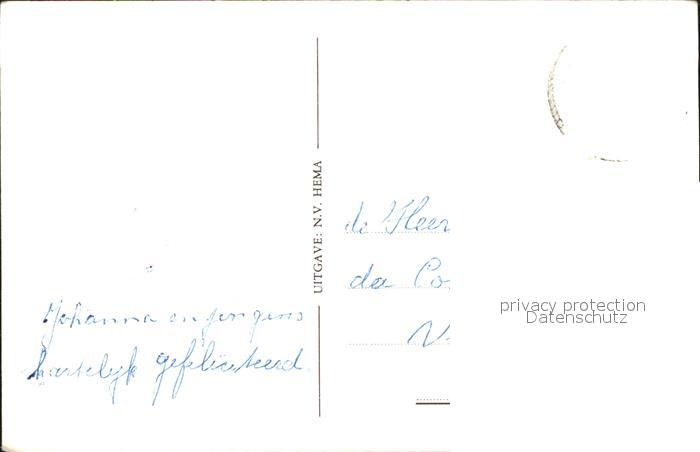 Johanna en jongens
hartelijk gefeliciteerd.
UITGAVE: N.V. HEMA
de Heer
da Co
V
privacy protection
Datenschutz